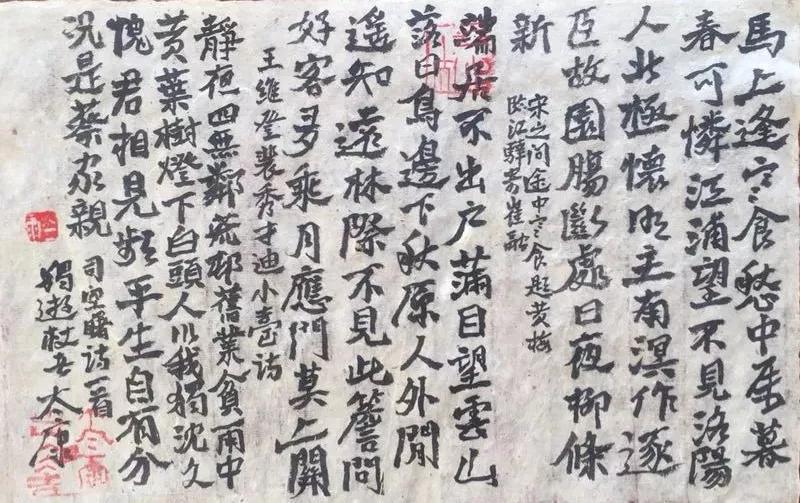 馬上逢寒食愁中屬暮
春可憐江浦望不見洛陽
人北極懷明主南溟作逐
臣故園腸斷處日夜柳條
新
宋之問途中寒食題黃梅
臨江驛寄崔融
端居不出户滿目望雲山
落日鳥邊下秋原人外閒
遥知遠林際不見此簷間
好客多乘月應門莫上關
王維登裴秀才迪小臺詩
靜夜四無鄰荒邨舊業貧雨中
黃葉樹燈下白頭人以我獨沈久
愧君相見頻平生自有分
況是蔡家親
司空曙詩一首